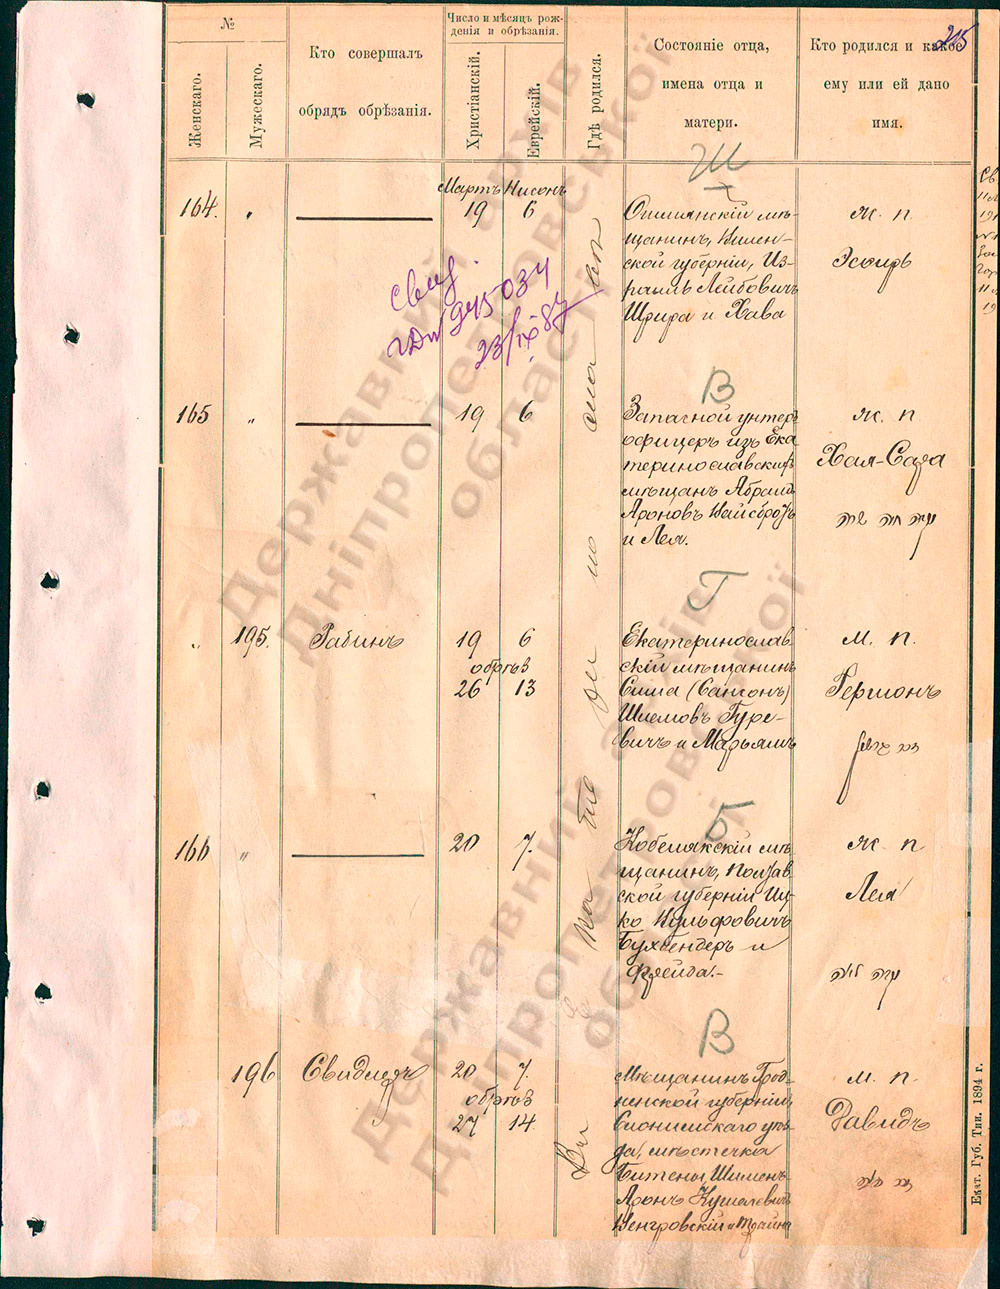 №
Женскаго.
Мужескаго.
Кто совершалъ
обрядъ обрѣзанія.
Число и мѣсяцъ рож-
денія и обрѣзанія.
Христіанскій.
Еврейскій.
Гдѣ родился.
Состояніе отца,
имена отца и
матери.
Кто родился и какое
ему или ей дано
имя.
Ш
Мартъ Нисонъ
164. " 19 6
Ошмянскій мѣ-
щанинъ, Вилен-
ской губерніи, Из-
раиль Лейбовичъ
Шрира и Хава
Ж. п.
Эсѳирь
23/IX 87
В
165 " 19 6
Запасной унтеръ
офицеръ изъ Ека
теринославскихъ
мѣщанъ Абрамъ
Ароновъ Вайсбродъ
и Лея.
Ж. п.
Хая-Сара
Г
" 195. Рабинъ 19 6
обрѣз
26 13
Екатеринослав-
скій мѣщанинъ
Сима (Самсонъ)
Шлемовъ Гуре-
вичъ и Марьямъ
М. п.
Гершонъ
Б
166 " 20 7.
Кобелякскій мѣ-
щанинъ, Полтав-
ской губерніи Иц-
ко Вульфовичъ
Бухбендеръ и
Фрейда.-
Ж. п
Лея
В
196 20 7.
обрѣз
27 14
Мѣщанинъ Грод-
ненской губерніи,
Слонимскаго уѣз-
да, мѣстечка
Битены, Шлиомъ-
Аронъ
Венгровскій и
М. п.
Давидъ
Екат. Губ. Тип. 1894 г.
Державний архів
Дніпропетровської
області
Державний архів
Дніпропетровської
області